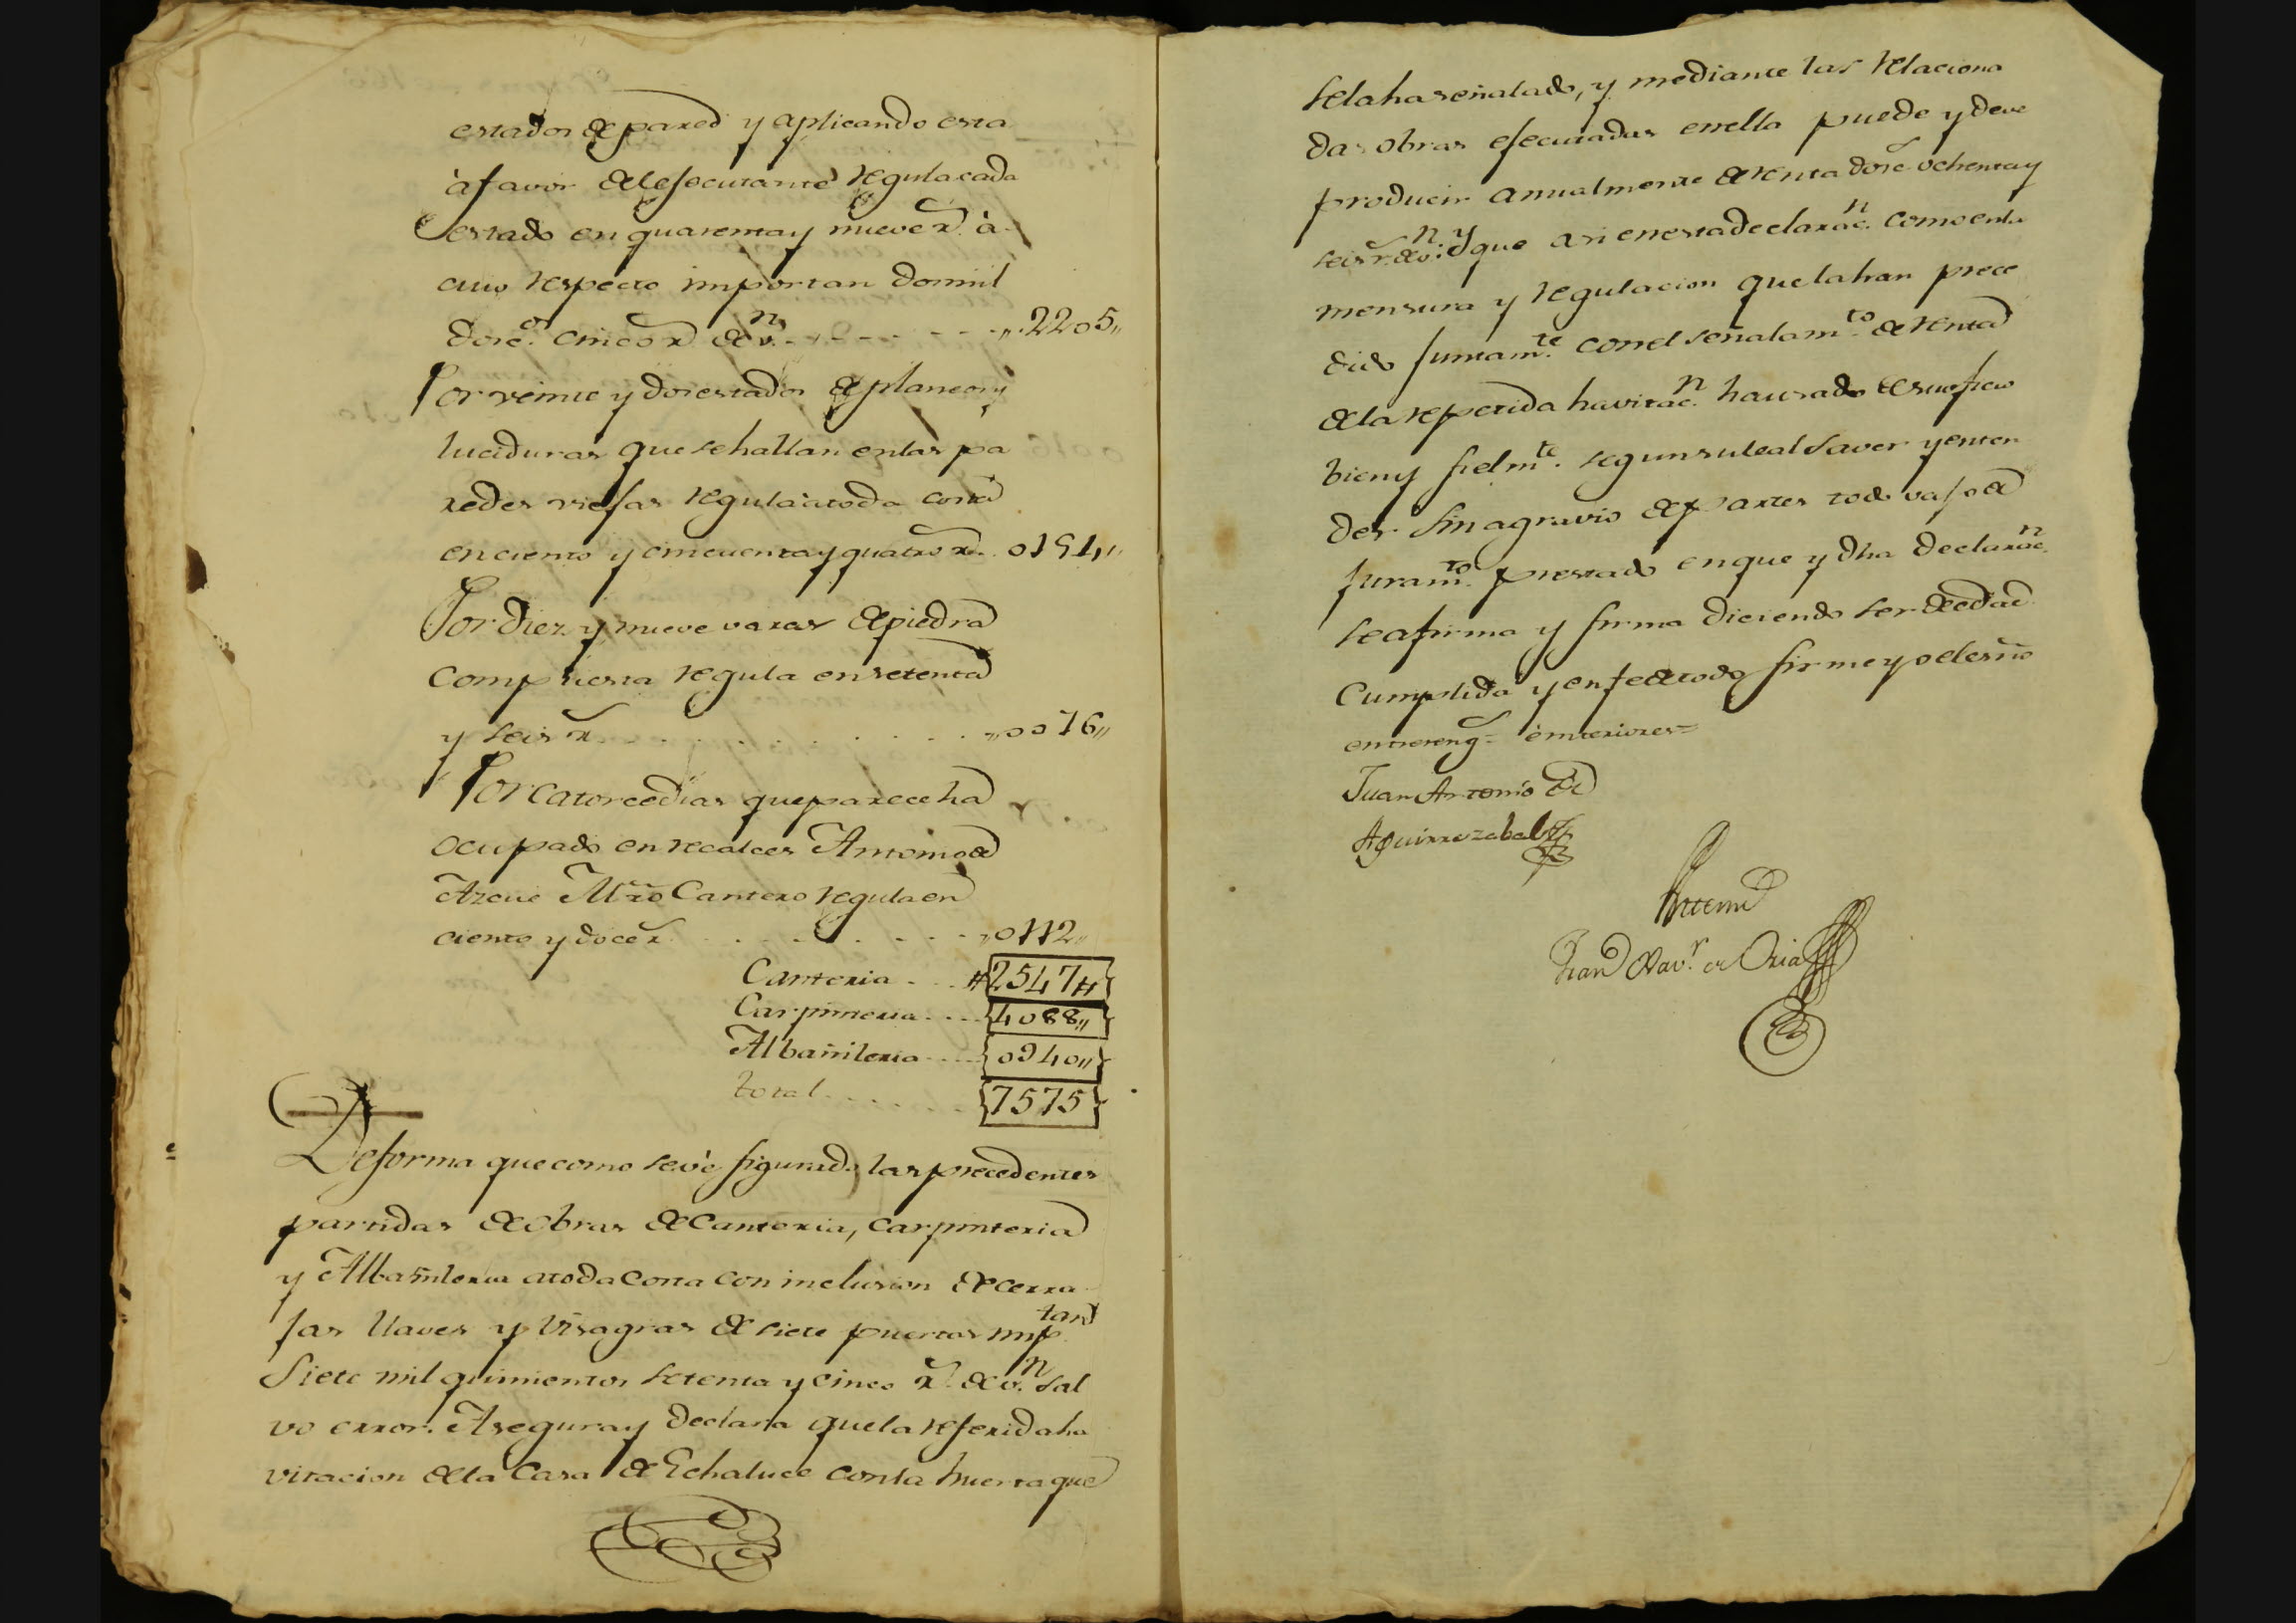 estados de pared y aplicando esta
à favor del ejecutante regula cada
estado en quarenta y nueve r.s à
cuio respecto importan dos mil
dosc.os cinco r.s de v.n ,,2205,,
Por veinte y dos estados de planeo y
luciduras que se hallan en las pa
redes viejas regula à toda costa
en ciento y cincuenta y quatro r.s 0154,,
Por diez y nueve varas de piedra
compuesta regula en setenta
y seis r.s ,,0076,,
Por catorce dias que parece ha
ocupado en recalces Antonio de
Azcue Mro Cantero regula en
ciento y doce r.s ,,0112,,
Canteria 2547
Carpinteria 4088,,
Albañileria 0940,,
total 7575
De forma que como se vè figurado las precedentes
partidas de obras de Canteria, carpinteria
y Albañileria a toda costa con inclusion de cerra
jas llaves y visagras de siete puertas imp.tan
Siete mil quinientos setenta y cinco r.s de v.n sal
vo error. Asegura y declara que la referida ha
vitacion de la Casa de Echaluce con la huerta que
se la ha señalado, y mediante las relaciona
das obras ejecutadas en ella puede y deve
producir anualmente de renta dosc.s ochenta y
seis r.s de v.n y que asi en esta declarac.n como en la
mensura y regulacion que la han prece
dido juntam.te con el señalam.to de renta
de la repetida havitac.n ha usado de su oficio
bien y fielm.te segun su leal saver y enten
der sin agravio de partes todo vajo de
juram.to prestado en que y dha declarac.n
se afirma y firma diciendo ser de edad
cumplida y en fe de todo firme yo el es.no
entrereng.s = interiores =
Juan Antonio de
Aguirrezabal
Antemi
Fran.co Xav.r de Oria